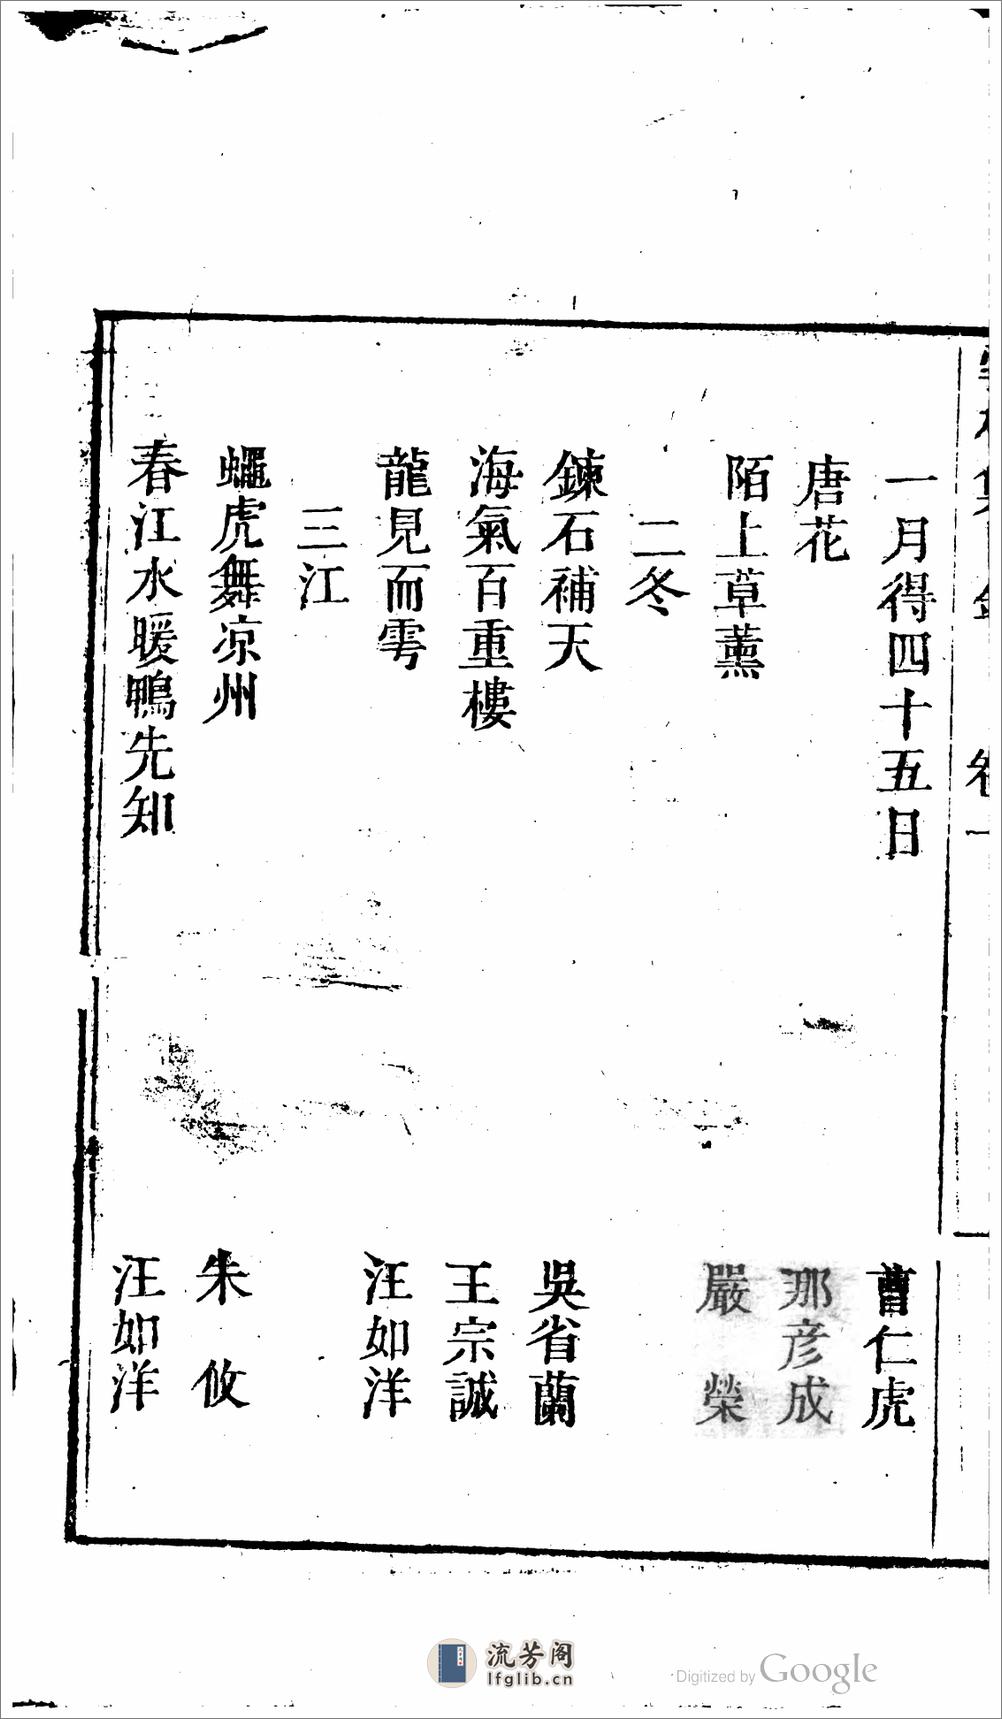 一月得四十五日 曹仁虎
唐花 那彦成
陌上草薰 嚴榮
二冬
鍊石補天 吳省蘭
海氣百重樓 王宗誠
龍見而雩 汪如洋
三江
蠅虎舞凉州 朱攸
春江水暖鴨先知 汪如洋
流芳阁
lfglib.cn
Digitized by Google